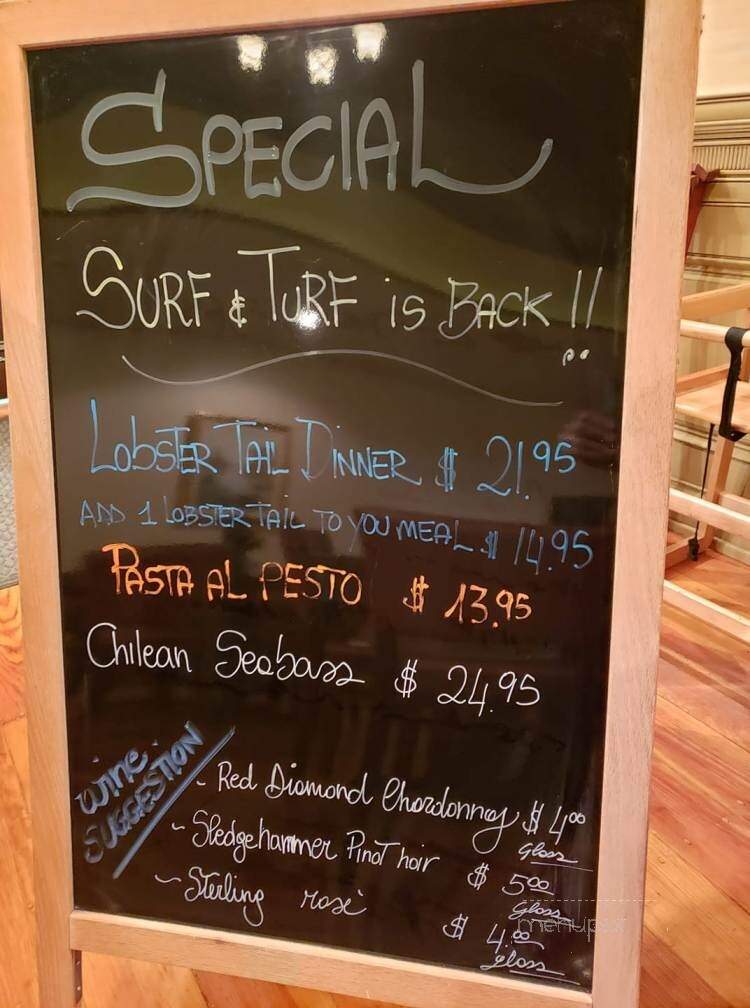 SPECIAL
SURF & TURF IS BACK !!
LOBSTER TAIL DINNER $ 21.95
ADD 1 LOBSTER TAIL TO YOU MEAL $ 14.95
PASTA AL PESTO $ 13.95
Chilean Seabass $ 24.95
wine SUGGESTION
- Red Diamond Chardonnay $ 4.00
Glass
~ Sledgehammer Pinot noir $ 5.00
Glass
~ Sterling rosé $ 4.00
glass
menupix